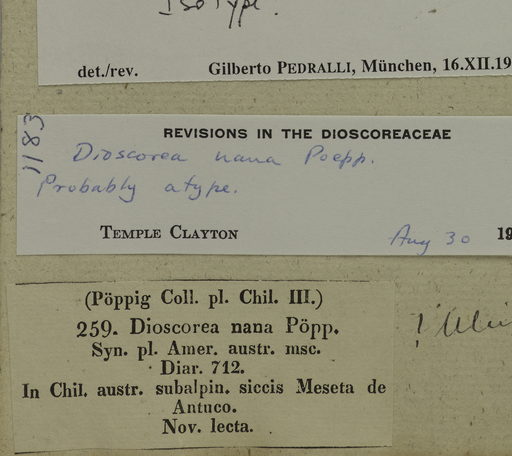 Isotype.
det./rev. Gilberto PEDRALLI, München, 16.XII.19
1183
REVISIONS IN THE DIOSCOREACEAE
Dioscorea nana Poepp.
Probably a type.
TEMPLE CLAYTON Aug 30 19
(Pöppig Coll. pl. Chil. III.)
259. Dioscorea nana Pöpp.
Syn. pl. Amer. austr. msc.
Diar. 712.
In Chil. austr. subalpin. siccis Meseta de
Antuco.
Nov. lecta.